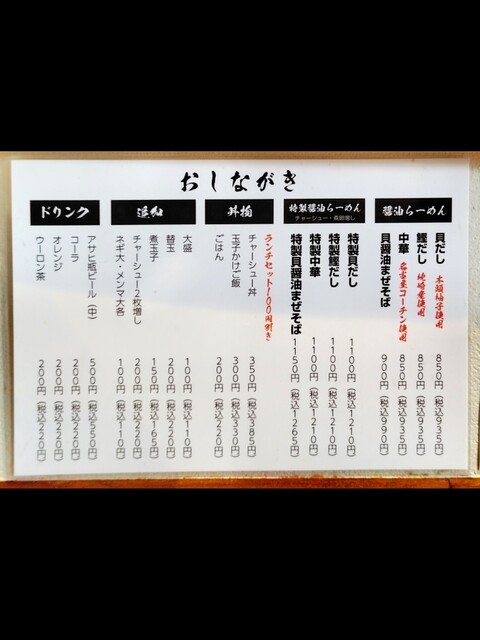 おしながき
醤油らーめん
貝だし 木頭柚子使用 850円(税込935円)
鰹だし 枕崎産使用 850円(税込935円)
中華 名古屋コーチン使用 850円(税込935円)
貝醤油まぜそば 900円(税込990円)
特製醤油らーめん
チャーシュー・煮卵増し
特製貝だし 1100円(税込1210円)
特製鰹だし 1100円(税込1210円)
特製中華 1100円(税込1210円)
特製貝醤油まぜそば 1150円(税込1265円)
丼物
ランチセット100円引き
チャーシュー丼 350円(税込385円)
玉子かけご飯 300円(税込330円)
ごはん 200円(税込220円)
追加
大盛 100円(税込110円)
替玉 200円(税込220円)
煮玉子 150円(税込165円)
チャーシュー2枚増し 200円(税込220円)
ネギ大・メンマ大各 100円(税込110円)
ドリンク
アサヒ瓶ビール(中) 500円(税込550円)
コーラ 200円(税込220円)
オレンジ 200円(税込220円)
ウーロン茶 200円(税込220円)